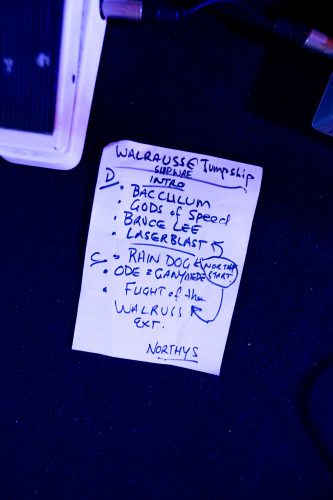 WALRAUSSE Jumpship
SHPWRE
INTRO
D
• BACCULUM
• GODS of SPEED
• BRUCE LEE
• LASERBLAST
C • RAIN DOG
NORTH START
• ODE 2 GANYMEDE
• FLIGHT of the
WALRUSS
EXT.
NORTHYS